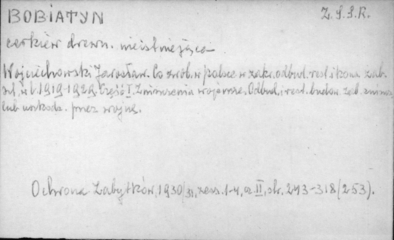 BOBIATYN Z.S.S.R.
cerkiew drewn. nieistniejąca
Wojciechowski Jarosław. Co zrob. w Polsce w zakr. odbud. rest. i kons. zab.
w l. 1919-1929. Część I. Zniszczenia wojenne. Odbud. i rest. budow. zab. zniszcz.
lub uszkodz. przez wojnę.
Ochrona Zabytków, 1930/31, zesz. 1-4, cz. II, str. 243-318 (253).